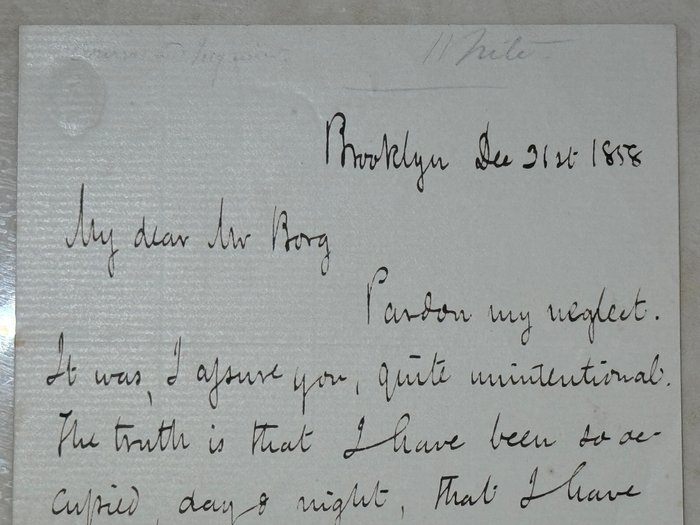 Brooklyn Dec 31st 1858
My dear Mr Borg
Pardon my neglect.
It was, I assure you, quite unintentional.
The truth is that I have been so oc-
cupied, day & night, that I have